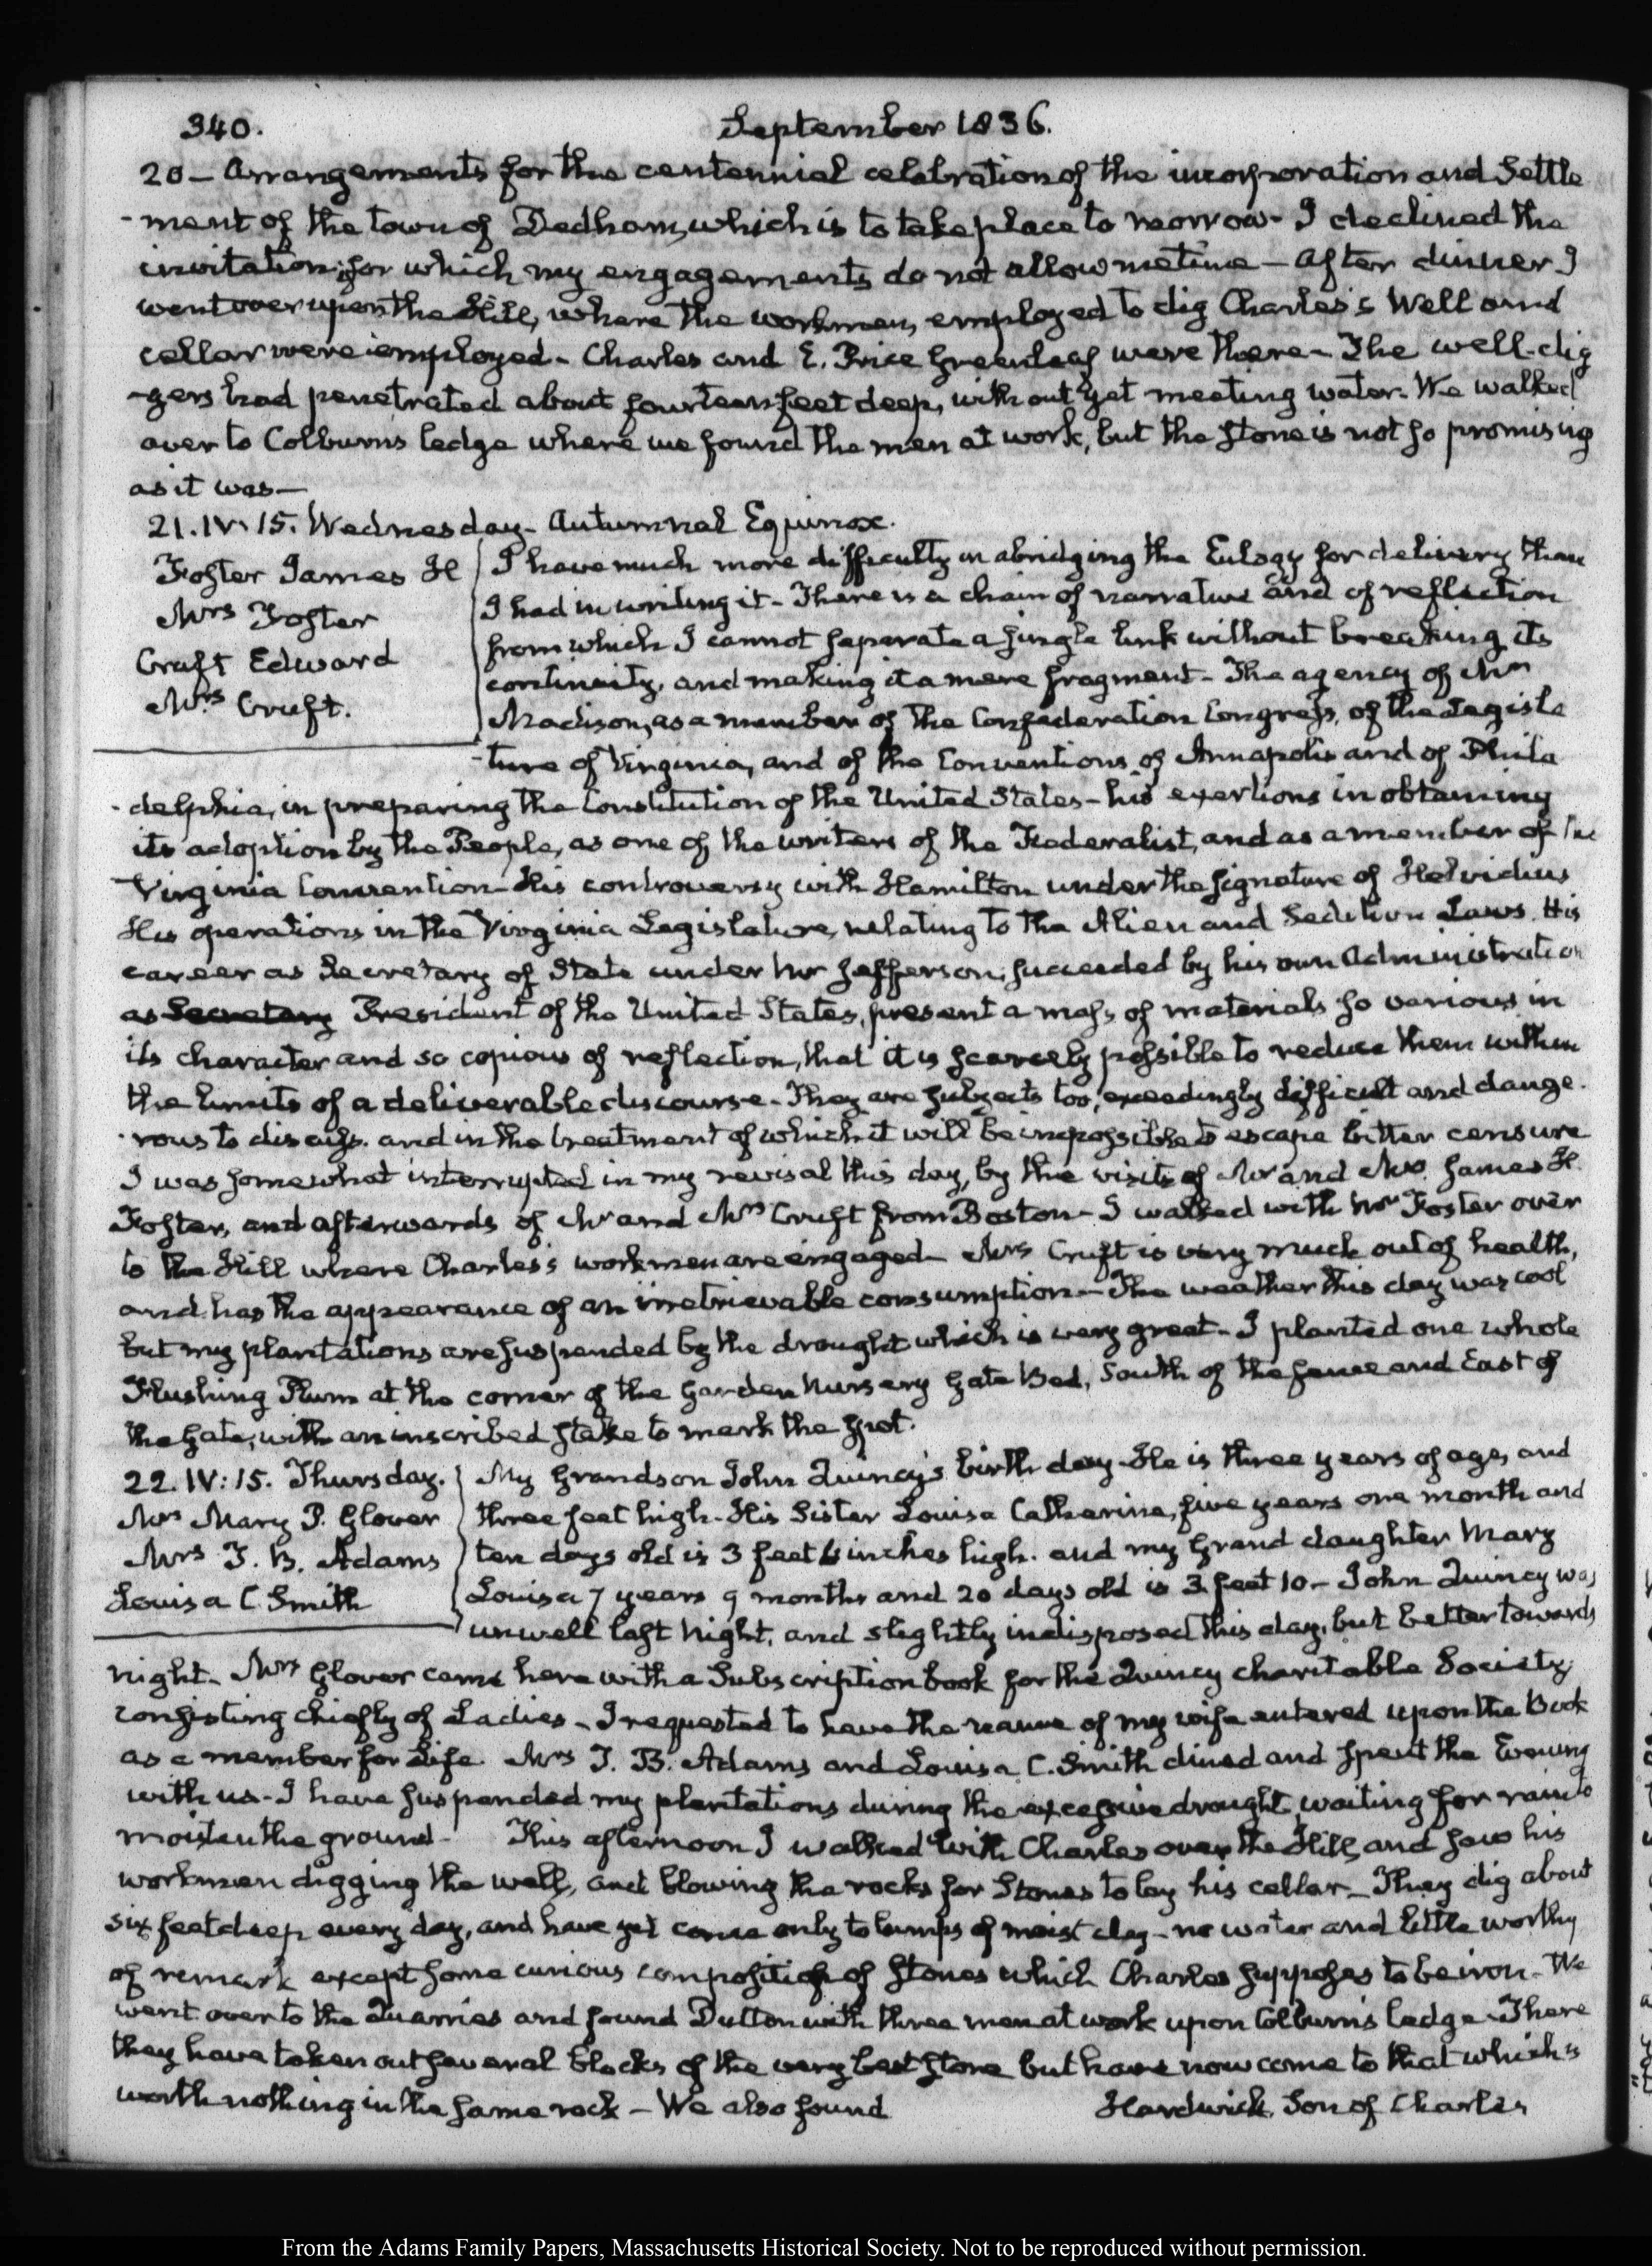 340. September 1836.
20 - Arrangements for the centennial celebration of the incorporation and Settle
-ment of the town of Dedham, which is to take place to morrow - I declined the
invitation, for which my engagements do not allow me time - After dinner I
went over upon the Hill, where the workmen, employed to dig Charles's Well and
cellar were employed - Charles and E. Price Greenleaf were there - The well-dig
-gers had penetrated about fourteen feet deep, without yet meeting water - We walked
over to Colburns ledge where we found the men at work, but the stone is not so promising
as it was -
21. IV. 15. Wednesday - Autumnal Equinox.
Foster James H
Mrs Foster
Cruft Edward
Mrs Cruft.
I have much more difficulty in abridging the Eulogy for delivery than
I had in writing it - There is a chain of narrative and of reflection
from which I cannot separate a single link without breaking its
continuity, and making it a mere fragment - The agency of Mr
Madison, as a member of the Confederation Congress, of the Legisla
-ture of Virginia, and of the Conventions of Annapolis and of Phila
-delphia, in preparing the Constitution of the United States - his exertions in obtaining
its adoption by the People, as one of the writers of the Federalist, and as a member of the
Virginia Convention - His controversy with Hamilton under the signature of Helvidius
His operations in the Virginia Legislature, relating to the Alien and Sedition Laws. His
career as Secretary of State under Mr Jefferson, succeeded by his own Administration
as Secretary President of the United States, present a mass of materials so various in
its character and so copious of reflection, that it is scarcely possible to reduce them within
the limits of a deliverable discourse - They are subjects too, exceedingly difficult and dange-
-rous to discuss. and in the treatment of which it will be impossible to escape bitter censure
I was somewhat interrupted in my revisal this day, by the visits of Mr and Mrs. James H.
Foster, and afterwards of Mr and Mrs Cruft from Boston - I walked with Mr Foster over
to the Hill where Charles's workmen are engaged - Mrs Cruft is very much out of health,
and has the appearance of an irretrievable consumption - The weather this day was cool
but my plantations are suspended by the drought which is very great - I planted one whole
Flushing Plum at the corner of the Garden Nursery Gate Bed, South of the fence and East of
the Gate, with an inscribed stake to mark the spot.
22. IV: 15. Thursday.
Mrs Mary P. Glover
Mrs T. B. Adams
Louisa C. Smith
My Grandson John Quincy's birth day - He is three years of age, and
three feet high - His Sister Louisa Catherine, five years one month and
ten days old is 3 feet inches high. and my Grand daughter Mary
Louisa 7 years 9 months and 20 days old is 3 feet 10 - John Quincy was
unwell last Night, and slightly indisposed this day, but better towards
night - Mrs Glover came here with a Subscription book for the Quincy charitable Society
consisting chiefly of Ladies - I requested to have the name of my wife entered upon the Book
as a member for Life. Mrs T. B. Adams and Louisa C. Smith dined and spent the Evening
with us - I have suspended my plantations during the excessive drought, waiting for rain to
moisten the ground - This afternoon I walked with Charles over the Hill, and saw his
workmen digging the well, and blowing the rocks for Stones to lay his cellar - They dig about
six feet deep every day, and have yet come only to lumps of moist clay - no water and little worthy
of remark except some curious composition of stones which Charles supposes to be iron - We
went over to the Quarries and found Dutton with three men at work upon Colburn's ledge - There
they have taken out several blocks of the very best stone but have now come to that which is
worth nothing in the same rock - We also found Hardwick, Son of Charles
From the Adams Family Papers, Massachusetts Historical Society. Not to be reproduced without permission.